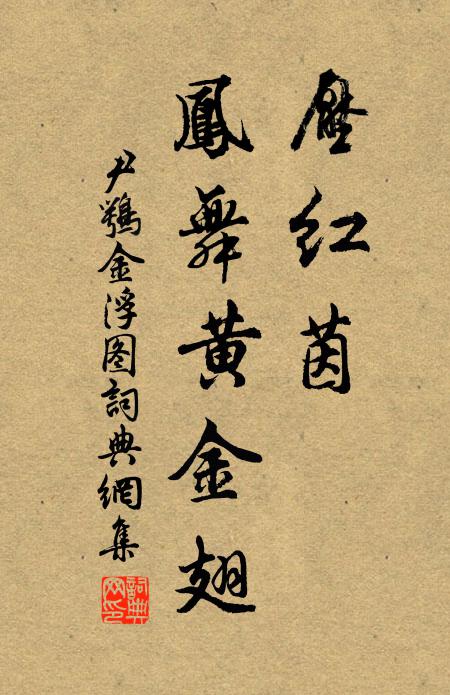 壓紅茵
鳳舞黃金翅
尹鶚金浮图詞典網集
詞典
网印